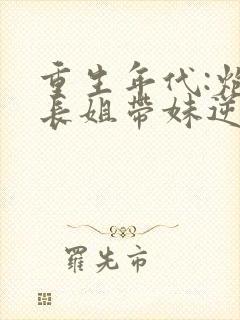 重生年代:
長姐帶妹逆
羅先市